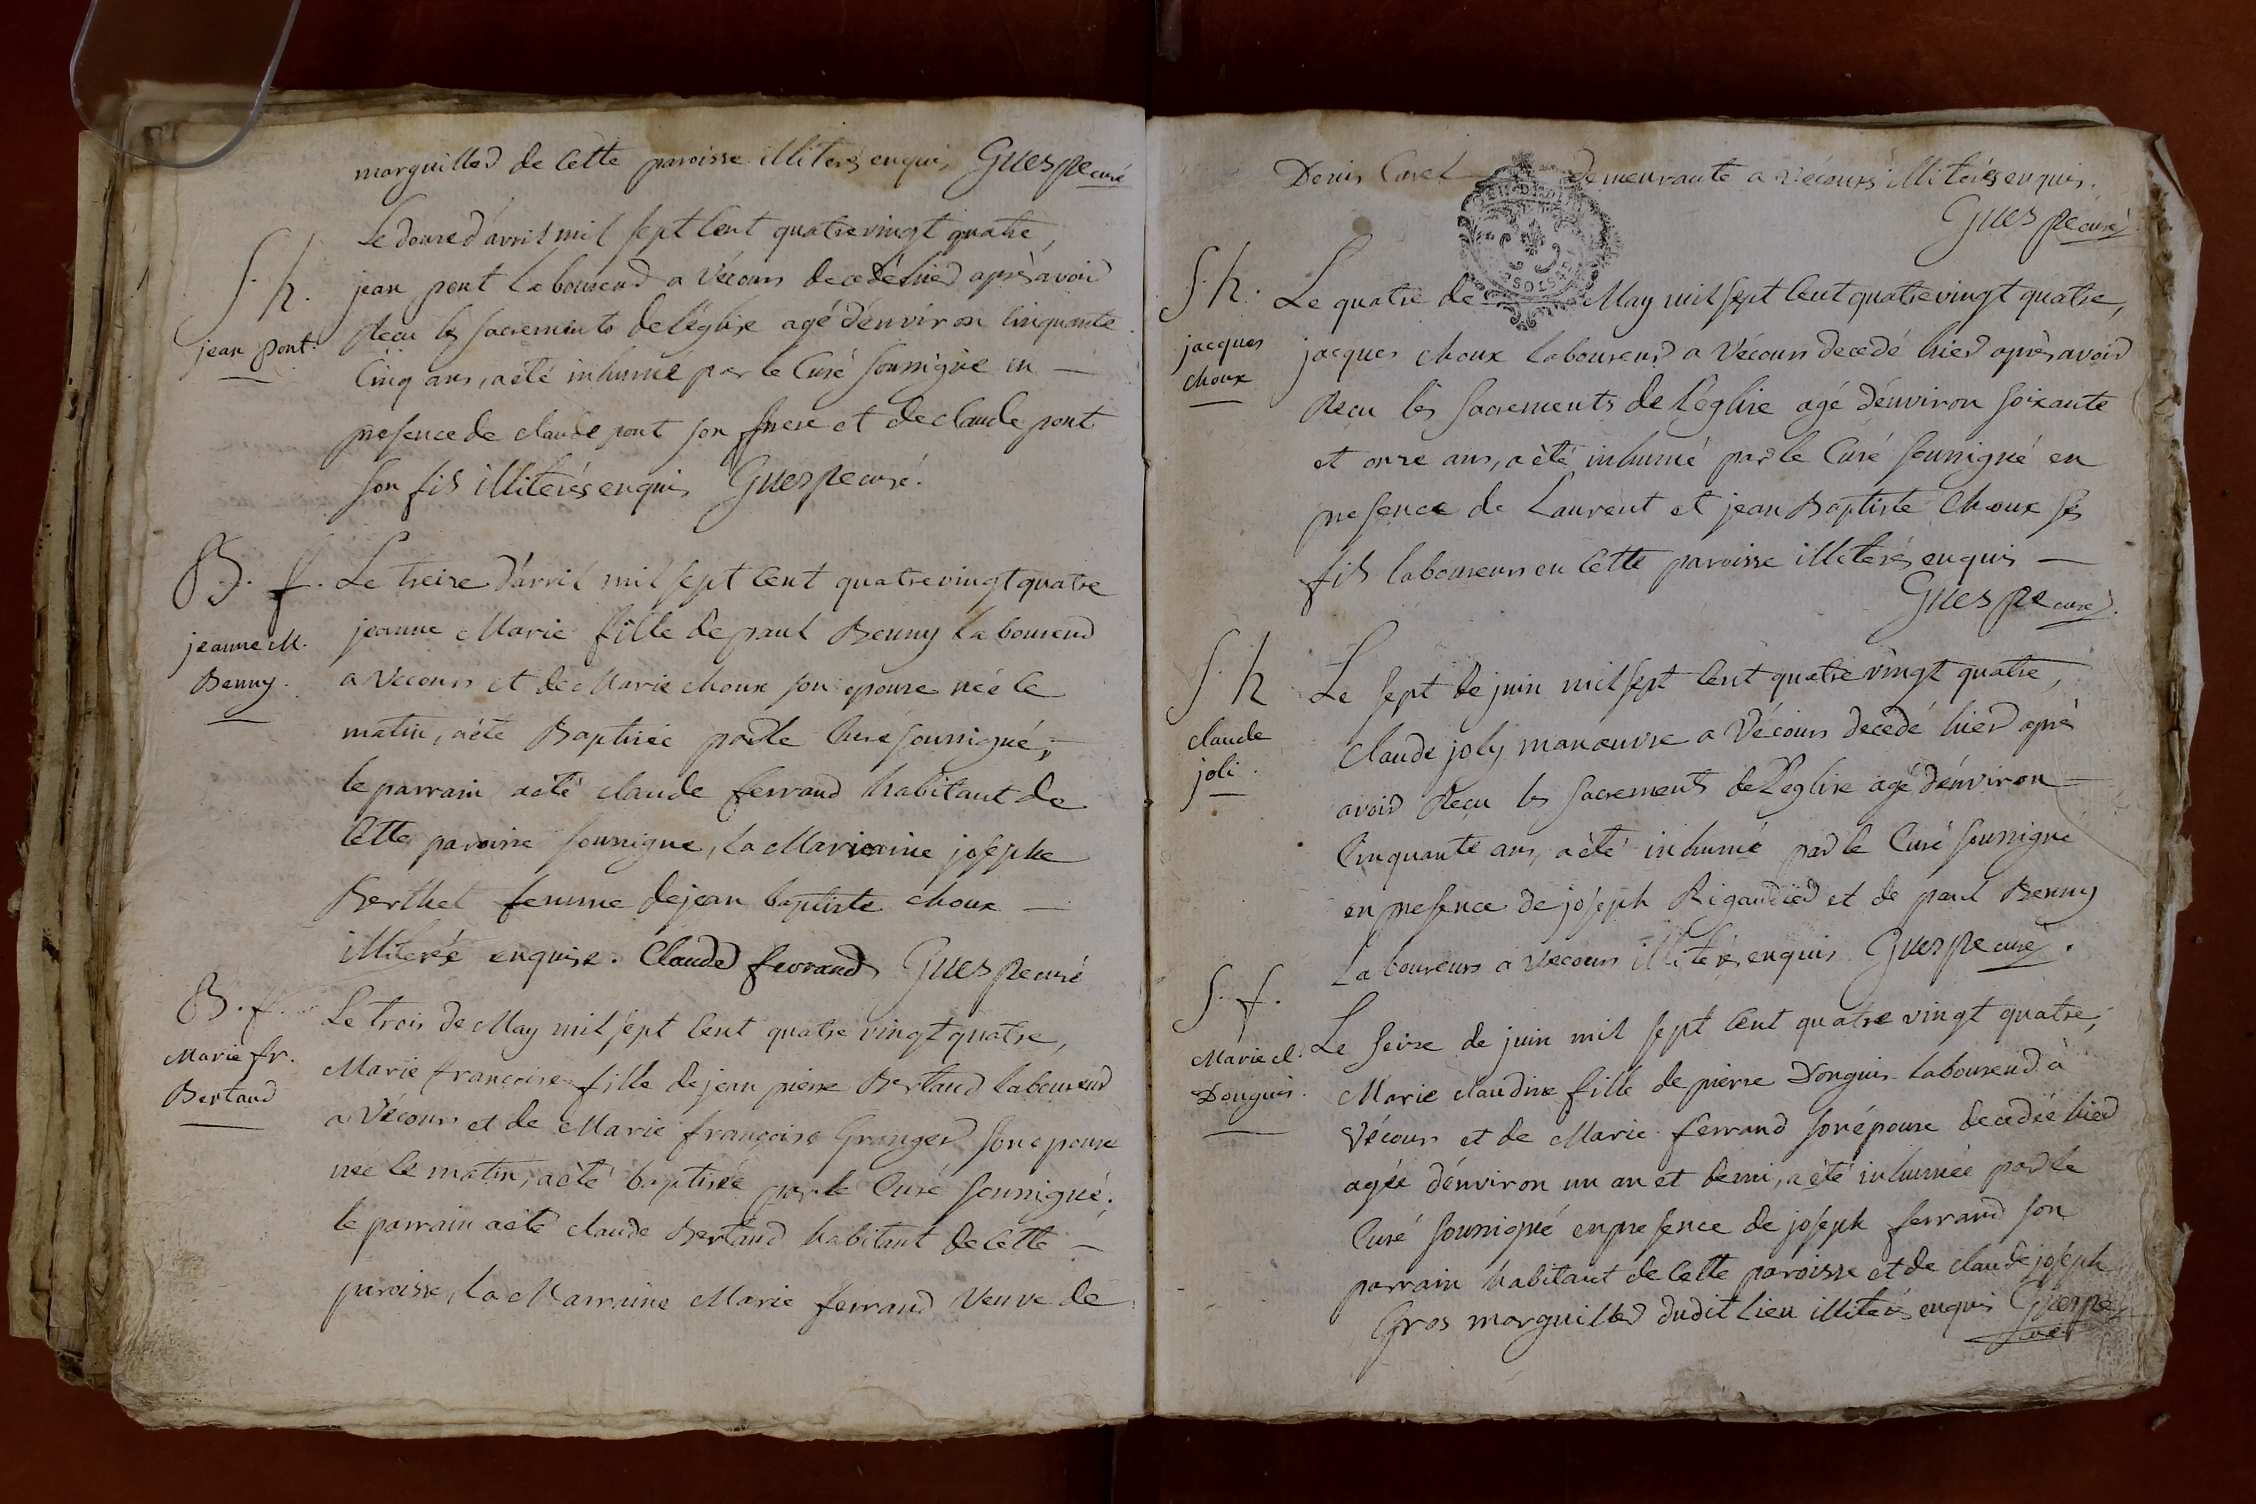 marguiller de Cette paroisse illiterés enquis Guespe curé
Le douze d'avril mil sept Cent quatrevingt quatre,
S. h.
jean pont.
jean pont Laboureur a Vécours decedé hier après avoir
Reçu les sacrements de l'église agé d'environ Cinquante
Cinq ans, a été inhumé par le Curé soussigné en —
presence de claude pont son frere et de claude pont
son fils illiterés enquis Guespe curé.
B. f.
jeanne M.
Benny.
Le treize d'avril mil sept Cent quatrevingt quatre
jeanne Marie fille de paul Benny Laboureur
a Vecours et de Marie choux son epouse née le
matin, a été Baptisée par le Curé soussigné;
le parrain a été claude ferrand habitant de
Cette paroisse soussigné, la Marraine josephe
Berthet femme de jean baptiste choux —
illiterée enquise. Claude ferrand Guespe curé
B. f.
Marie fr.
Bertaud
Le trois de May mil sept Cent quatre vingt quatre,
Marie françoise fille de jean pierre Bertaud laboureur
a Vécours et de Marie françoise Granger son epouse
née le matin, a été baptisée par le Curé soussigné;
le parrain a été claude Bertaud habitant de Cette —
paroisse, la Marraine Marie ferrand Veuve de
Denis Caret demeurante a Vécours illiterés enquis.
Guespe curé
S. h.
jacques
choux
Le quatre de May mil sept Cent quatrevingt quatre,
jacques choux laboureur a Vécours decedé hier après avoir
Reçu les sacrements de L'eglise agé d'environ soixante
et onze ans, a été inhumé par le Curé soussigné en
presence de Laurent et jean Baptiste Choux ses
fils laboureurs en Cette paroisse illiterés enquis —
Guespe curé.
S. h
claude
joli.
Le sept de juin mil sept Cent quatre vingt quatre,
claude joly manœuvre a Vécours decedé hier après
avoir Reçu les sacrements de L'eglise agé d'environ —
Cinquante ans, a été inhumé par le Curé soussigné
en presence de joséph Rigaudier et de paul Benny
Laboureurs a Vecours illiterés enquis Guespe curé.
S. f.
Marie cl.
Donguis.
Le seize de juin mil sept Cent quatre vingt quatre,
Marie claudine fille de pierre Donguis laboureur à
Vécours et de Marie ferrand son épouse decedée hier
agée d'environ un an et demi, a été inhumée par le
Curé soussigné en presence de joseph ferrand son
parrain habitant de Cette paroisse et de claude joséph
Gros marguiller dudit lieu illiterés enquis Guespe
curé